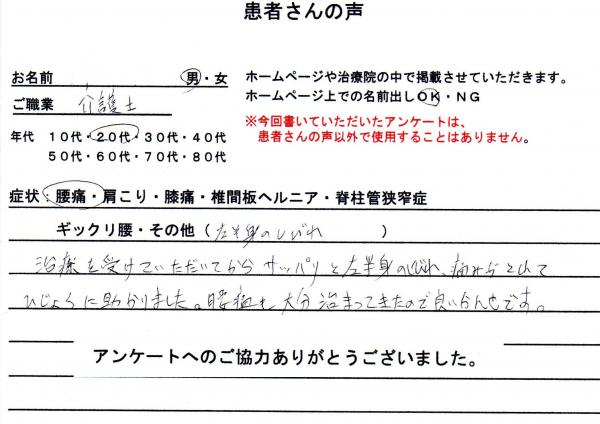 患者さんの声
お名前 男・女
ご職業 介護士
年代 10代・20代・30代・40代
50代・60代・70代・80代
ホームページや治療院の中で掲載させていただきます。
ホームページ上での名前出しOK・NG
※今回書いていただいたアンケートは、
患者さんの声以外で使用することはありません。
症状:腰痛・肩こり・膝痛・椎間板ヘルニア・脊柱管狭窄症
ギックリ腰・その他(左半身のしびれ)
治療を受けていただいてから サッパリと左半身のしびれ、痛みがとれて
ひじょうに助かりました。腰痛も大分治まってきたので良いかんじです。
アンケートへのご協力ありがとうございました。